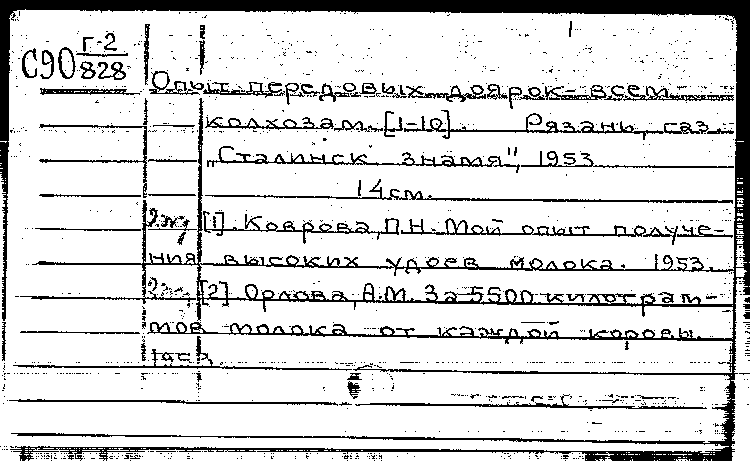 С90 Г-2/828
Опыт передовых доярок - всем
колхозам. [1-10]. Рязань, газ.
„Сталинск. знамя", 1953
14 см.
2жд [1]. Коврова, П.Н. Мой опыт получе-
ния высоких удоев молока. 1953.
2жд [2] Орлова, А.М. За 5500 килограм-
мов молока от каждой коровы.
1953.